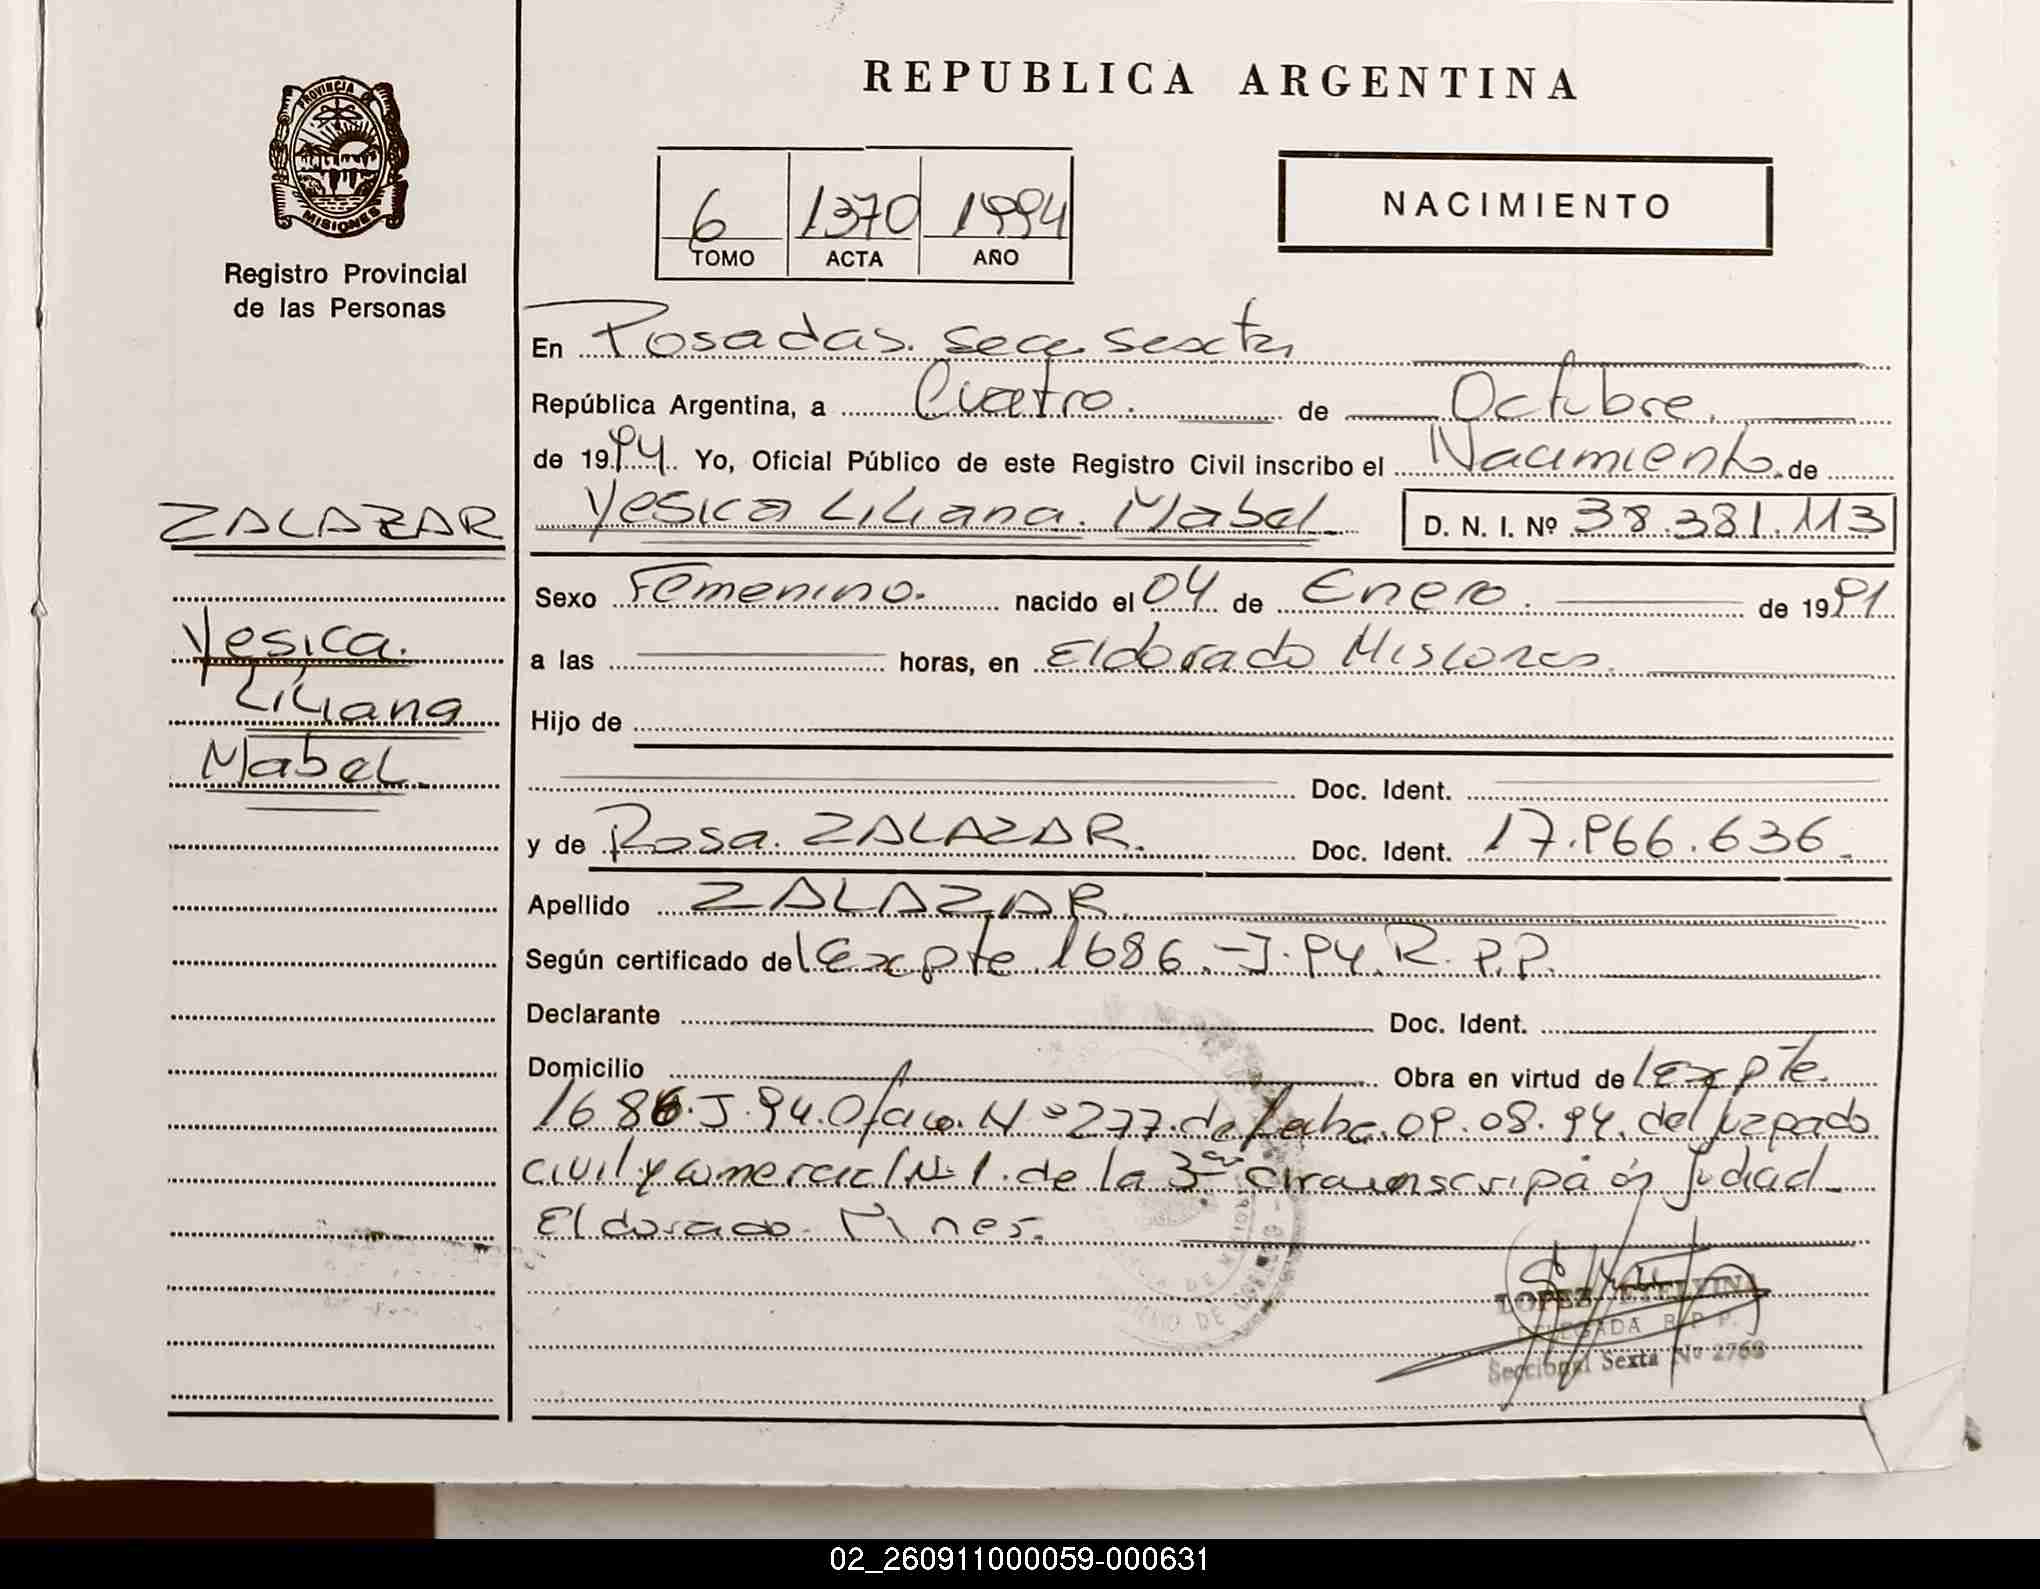 REPUBLICA ARGENTINA
PROVINCIA DE
MISIONES
Registro Provincial
de las Personas
6 1370 1994
TOMO ACTA AÑO
NACIMIENTO
En Posadas. Secc Sexta
República Argentina, a Cuatro. de Octubre.
de 1994. Yo, Oficial Público de este Registro Civil inscribo el Nacimiento de
ZALAZAR
Yesica Liliana. Mabel D. N. I. Nº 38.381.113
Sexo Femenino. nacido el 04 de Enero. de 1991
Yesica.
Liliana
Mabel.
a las horas, en Eldorado Misiones.
Hijo de
Doc. Ident.
y de Rosa. ZALAZAR. Doc. Ident. 17.966.636.
Apellido ZALAZAR
Según certificado del Expte 1686.-J.94.R.P.P.
Declarante Doc. Ident.
Domicilio Obra en virtud del Expte
1686.J.94.Oficio.Nº277.de fecha.09.08.94.del Juzgado
civil y comercial Nº1.de la 3ra circunscripción Judicial
Eldorado. Mnes.
LOPEZ ETELVINA
DELEGADA R. P. P.
Seccional Sexta Nº 2768
02_260911000059-000631